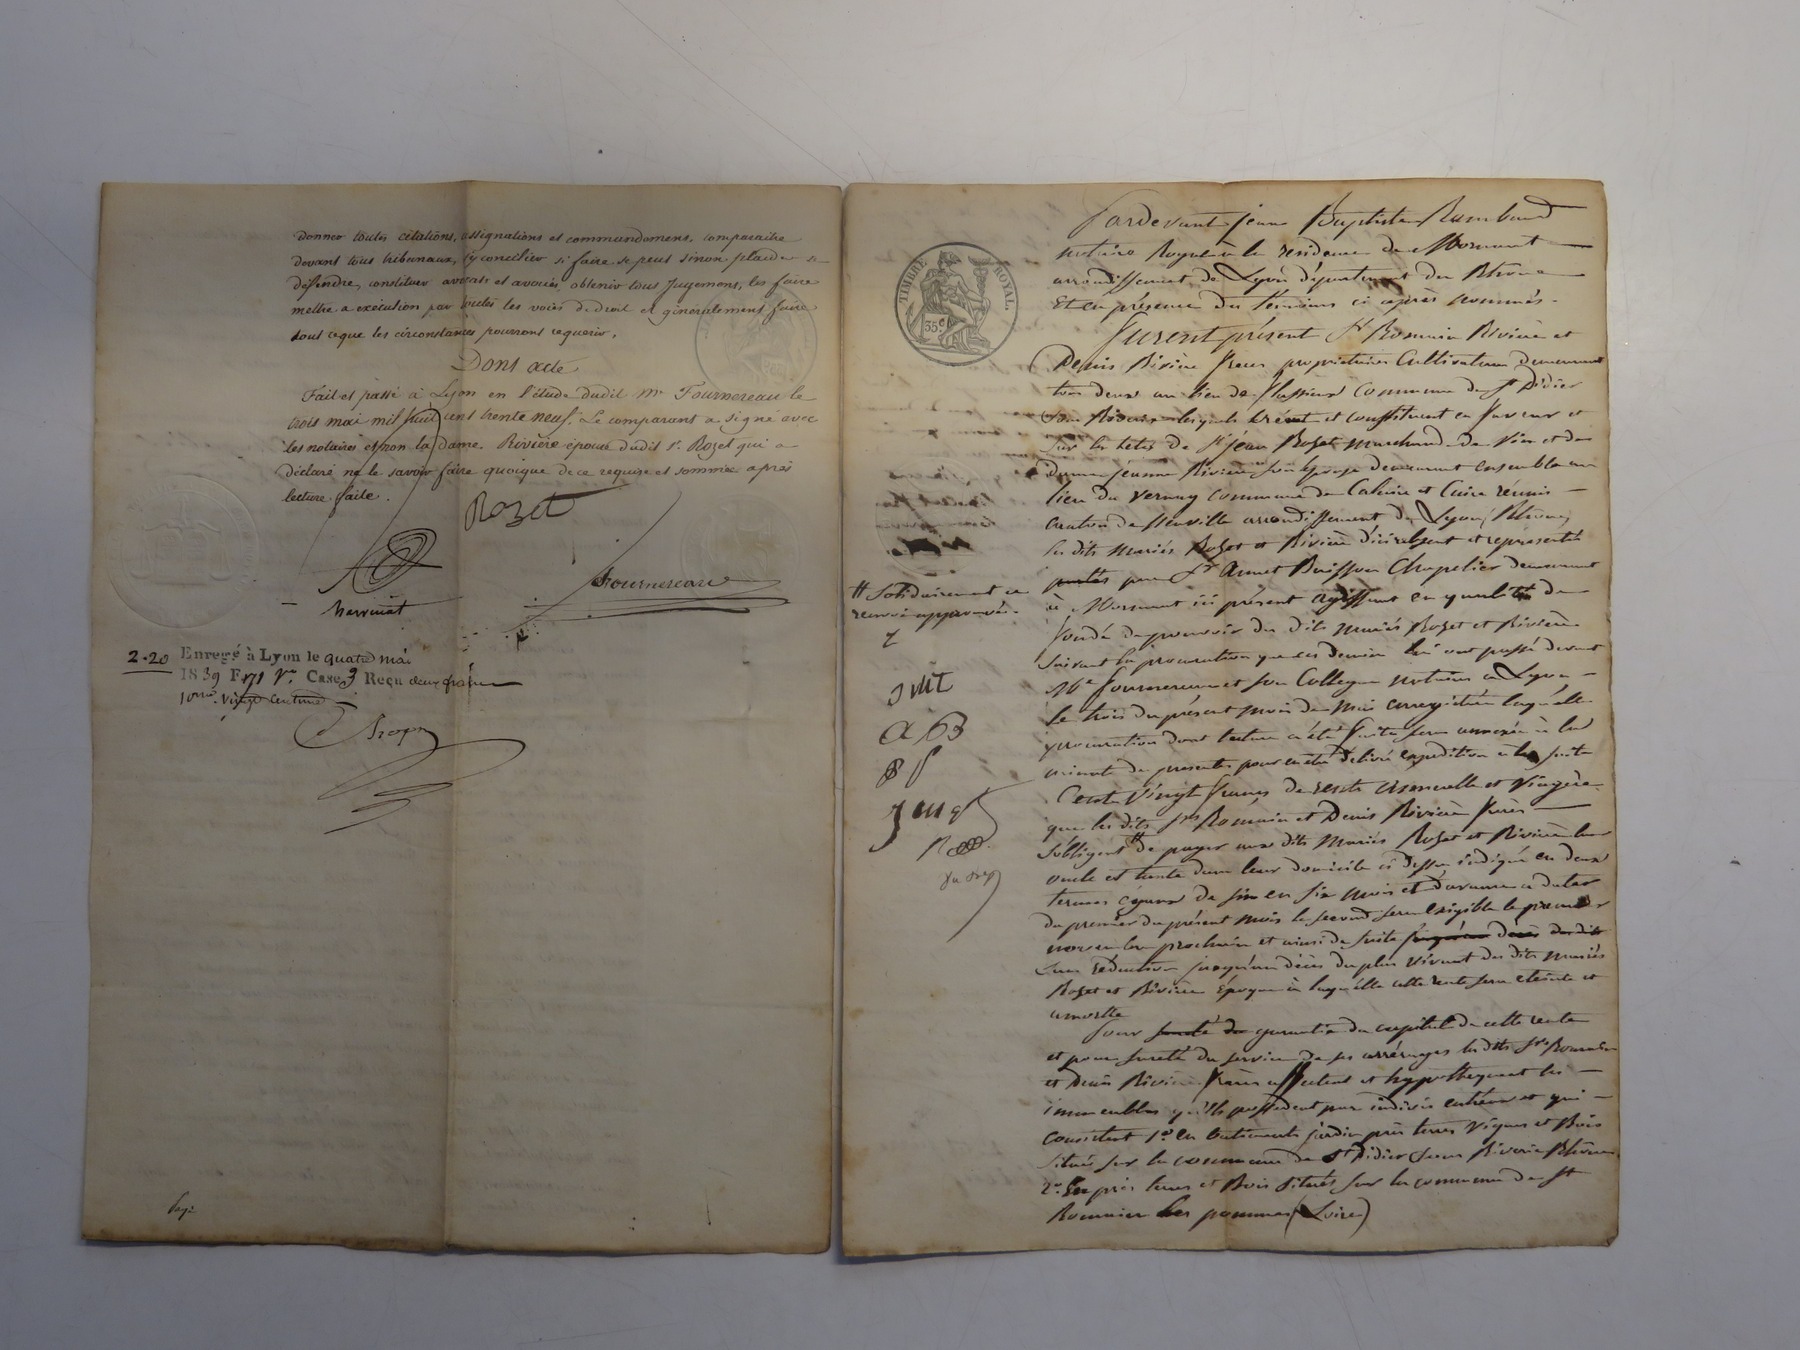 donner toutes citations, assignations et commandemens, comparaitre
devant tous tribunaux, s'y concilier si faire se peut sinon plaider se
défendre, constituer avocats et avoués, obtenir tous Jugemens, les faire
mettre a exécution par toutes les voies de droit et généralement faire
tout ce que les circonstances pourront requerir.
Dont acte
Fait et passé à Lyon en l'étude dudit Me Fournereau le
trois mai mil huit cent trente neuf. Le comparant a signé avec
les notaires et non la dame Rivière épouse dudit Sr Rozet qui a
déclaré ne le savoir faire quoique de ce requise et sommée après
lecture faite.
Rozet
Fournereau
2-20 Enregé à Lyon le quatre mai
1839 F 71 Vo Case 3 Reçu deux francs
vingt centimes
TIMBRE ROYAL
35c
Pardevant Jean Baptiste Rambaud
notaire Royal à la résidence de Mornant
arrondissement de Lyon département du Rhône
Et en présence des témoins ci après nommés.
Furent présent Sr Romain Rivière et
Denis Rivière frères propriétaires Cultivateurs demeurant
tous deux au lieu de commune de St Didier
sous Riverie lesquels créent et constituent en faveur et
sur les têtes de Sr Jean Rozet marchand de vin et de
dame Jeanne Rivière son épouse demeurant ensemble au
lieu du Vernay commune de Caluire et Cuire réunis
canton de Neuville arrondissement de Lyon, Rhône,
les dits mariés Rozet et Rivière ici et représentés
par Sr Annet Buisson Chapelier demeurant
à Mornant ici présent agissant en qualité de
fondé de pouvoir des dits mariés Rozet et Rivière
suivant la procuration que ces derniers lui ont passé devant
Me Fournereau et son Collegue notaires à Lyon
le trois du présent mois de mai enregistrée laquelle
procuration dont lecture a été faite sera annexée à la
minute des presentes pour en être délivré expedition à la suite
Cent Vingt francs de rente annuelle et viagère
que les dits Srs Romain et Denis Rivière frères
s'obligent # de payer aux dits mariés Rozet et Rivière leur
oncle et tante dans leur domicile ci dessus indiqué en deux
termes égaux de six en six mois et d'avance à dater
du premier du présent mois le second sera exigible le premier
novembre prochain et ainsi de suite
sans réduction jusqu'au décès du plus vivant des dits mariés
Rozet et Rivière époque à laquelle cette rente sera éteinte et
amortie
Pour garantie du capital de cette rente
et pour sureté du service de ses arrérages les dits Srs Romain
et Denis Rivière frères affectent et hypothequent les
immeubles qu'ils possèdent par indivis entr'eux et qui
consistent 1o en batiments jardin prés terres Vignes et Bois
situés sur la commune de St Didier sous Riverie Rhône
2o En prés terres et Bois situés sur la commune de St
Romain les pommes (Loire)
# Solidairement ce
renvoi approuvé.
A B